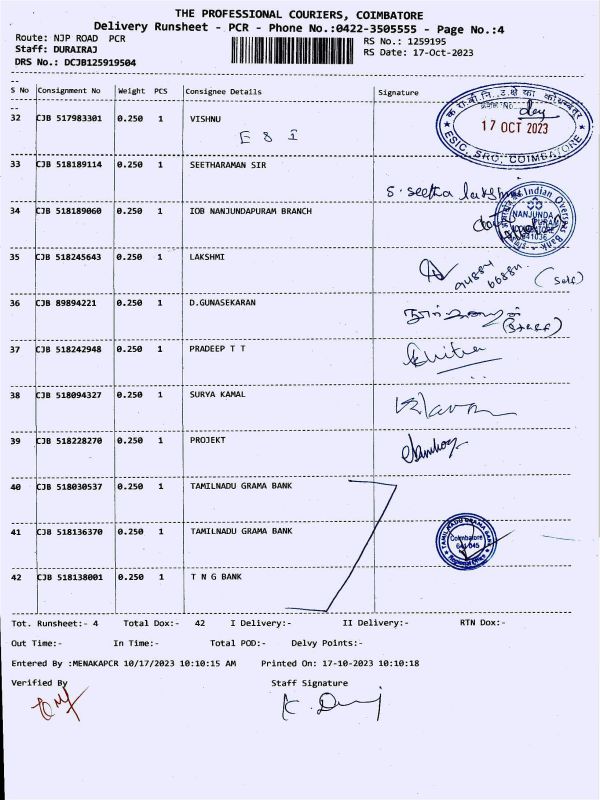 THE PROFESSIONAL COURIERS, COIMBATORE
Delivery Runsheet - PCR - Phone No.:0422-3505555 - Page No.:4
Route: NJP ROAD PCR
RS No.: 1259195
Staff: DURAIRAJ
RS Date: 17-Oct-2023
DRS No.: DCJB125919504
S No Consignment No Weight PCS Consignee Details Signature
32 CJB 517983301 0.250 1 VISHNU
E S I
17 OCT 2023
ESIC, SRO, COIMBATORE
33 CJB 518189114 0.250 1 SEETHARAMAN SIR
S. seetha lakshmi
34 CJB 518189060 0.250 1 IOB NANJUNDAPURAM BRANCH
Indian Overseas Bank
NANJUNDA
PURAM
35 CJB 518245643 0.250 1 LAKSHMI
(Self)
36 CJB 89894221 0.250 1 D.GUNASEKARAN
37 CJB 518242948 0.250 1 PRADEEP T T
38 CJB 518094327 0.250 1 SURYA KAMAL
39 CJB 518228270 0.250 1 PROJEKT
40 CJB 518030537 0.250 1 TAMILNADU GRAMA BANK
41 CJB 518136370 0.250 1 TAMILNADU GRAMA BANK
TAMIL NADU GRAMA BANK
Coimbatore
641 045
Regional Office
42 CJB 518138001 0.250 1 T N G BANK
Tot. Runsheet:- 4 Total Dox:- 42 I Delivery:- II Delivery:- RTN Dox:-
Out Time:- In Time:- Total POD:- Delvy Points:-
Entered By :MENAKAPCR 10/17/2023 10:10:15 AM Printed On: 17-10-2023 10:10:18
Verified By Staff Signature